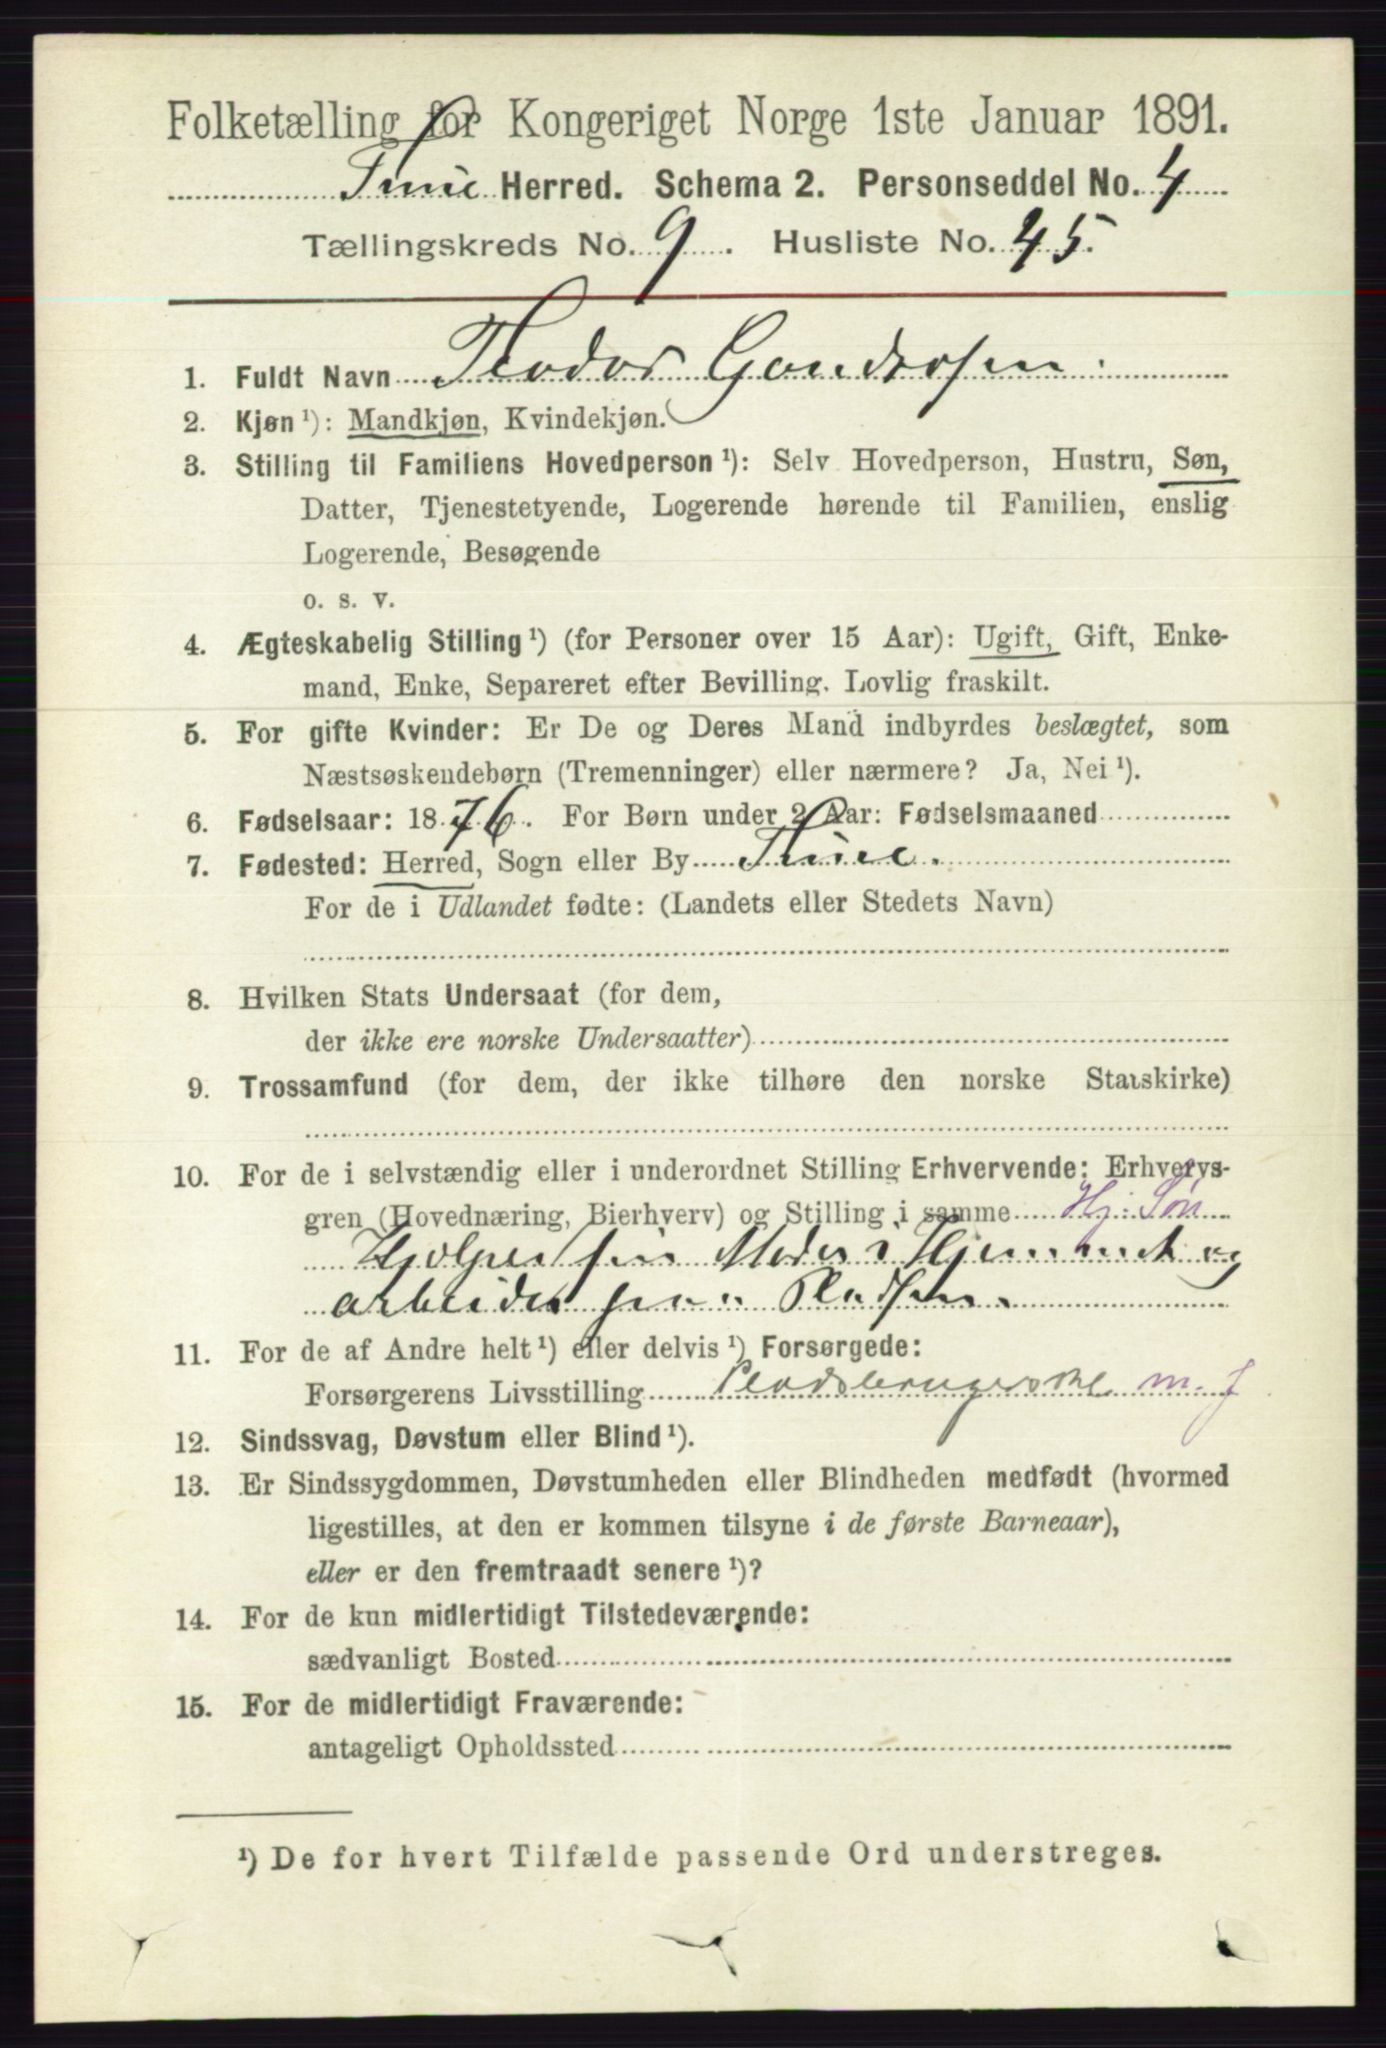 Folketælling for Kongeriget Norge 1ste Januar 1891.
Tune Herred. Schema 2. Personseddel No. 4
Tællingskreds No. 9. Husliste No. 45.
1. Fuldt Navn Theodor
2. Kjøn ¹): Mandkjøn, Kvindekjøn.
3. Stilling til Familiens Hovedperson ¹): Selv Hovedperson, Hustru, Søn,
Datter, Tjenestetyende, Logerende hørende til Familien, enslig
Logerende, Besøgende
o. s. v.
4. Ægteskabelig Stilling ¹) (for Personer over 15 Aar): Ugift, Gift, Enke-
mand, Enke, Separeret efter Bevilling. Lovlig fraskilt.
5. For gifte Kvinder: Er De og Deres Mand indbyrdes beslægtet, som
Næstsøskendebørn (Tremenninger) eller nærmere? Ja, Nei ¹).
6. Fødselsaar: 1876. For Børn under 2 Aar: Fødselsmaaned
7. Fødested: Herred, Sogn eller By Tune.
For de i Udlandet fødte: (Landets eller Stedets Navn)
8. Hvilken Stats Undersaat (for dem,
der ikke ere norske Undersaatter)
9. Trossamfund (for dem, der ikke tilhøre den norske Statskirke)
10. For de i selvstændig eller i underordnet Stilling Erhvervende: Erhvervs-
gren (Hovednæring, Bierhverv) og Stilling i samme Hj: Søn
Hjælper sin Moder i Hjemmet og
arbeider paa Pladsen.
11. For de af Andre helt ¹) eller delvis ¹) Forsørgede:
Forsørgerens Livsstilling Pladsbrugerske m. J
12. Sindssvag, Døvstum eller Blind ¹).
13. Er Sindssygdommen, Døvstumheden eller Blindheden medfødt (hvormed
ligestilles, at den er kommen tilsyne i de første Barneaar),
eller er den fremtraadt senere ¹)?
14. For de kun midlertidigt Tilstedeværende:
sædvanligt Bosted
15. For de midlertidigt Fraværende:
antageligt Opholdssted
¹) De for hvert Tilfælde passende Ord understreges.